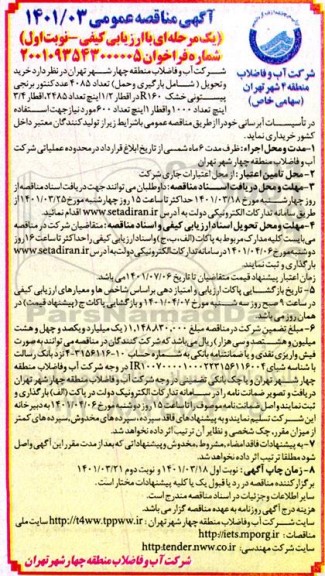 آگهی مناقصه عمومی ۱۴۰۱/۰۳
(یک مرحله‌ای با ارزیابی کیفی - نوبت اول)
شماره فراخوان ۲۰۰۱۰۹۳۵۴۳۰۰۰۰۰۵
شرکت آب و فاضلاب
منطقه ۴ شهر تهران
(سهامی خاص)
شرکت آب و فاضلاب منطقه چهار شهر تهران در نظر دارد خرید
و تحویل (شامل بارگیری و حمل) تعداد ۴۰۸۵ عدد کنتور برنجی
پیستونی خشک R۱۶۰ در اقطار ۱/۲ اینچ تعداد ۲۴۸۵، اقطار ۳/۴
اینچ تعداد ۱۰۰۰ و اقطار ۱ اینچ تعداد ۶۰۰ مورد نیاز جهت استفاده
در تأسیسات آبرسانی خود را از طریق مناقصه عمومی با شرایط زیر از تولید کنندگان معتبر داخل
کشور خریداری نماید.
۱- مدت و محل اجراء: ظرف مدت ۶ ماه شمسی از تاریخ ابلاغ قرارداد در محدوده عملیاتی شرکت
آب و فاضلاب منطقه چهار شهر تهران
۲- محل تأمین اعتبار: از محل اعتبارات جاری شرکت
۳- مهلت و محل دریافت اسناد مناقصه: داوطلبان می توانند جهت دریافت اسناد مناقصه از
روز چهارشنبه مورخ ۱۴۰۱/۰۳/۱۸ حداکثر تا ساعت ۱۵ روز چهارشنبه مورخ ۱۴۰۱/۰۳/۲۵ از
طریق سامانه تدارکات الکترونیکی دولت به آدرس www.setadiran.ir اقدام نمایند
۴- مهلت و محل تحویل اسناد ارزیابی کیفی و اسناد مناقصه: متقاضیان شرکت در مناقصه
می بایست کلیه مدارک مربوط به پاکات (الف، ب، ج) و اسناد ارزیابی کیفی را حداکثر تا ساعت ۱۶ روز
دوشنبه مورخ ۱۴۰۱/۰۴/۰۶ در سامانه تدارکات الکترونیکی دولت به آدرس www.setadiran.ir
بارگذاری و ثبت نمایند.
زمان اعتبار پیشنهاد قیمت متقاضیان تا تاریخ ۱۴۰۱/۰۷/۰۶ می باشد.
۵- تاریخ بازگشایی پاکات ارزیابی و امتیازدهی براساس شاخص ها و معیارهای ارزیابی کیفی
در ساعت ۹ صبح روز سه شنبه مورخ ۱۴۰۱/۰۴/۰۷ و بازگشایی پاکات ج (پیشنهاد قیمت) در
همان روز می باشد.
۶- مبلغ تضمین شرکت در مناقصه مبلغ ۱,۱۴۸,۸۳۰,۰۰۰ (یک میلیارد و یکصد و چهل و هشت
میلیون و هشتصد و سی هزار) ریال می باشد که شرکت کنندگان در مناقصه می توانند به صورت
فیش واریزی نقدی و یا ضمانتنامه بانکی به شماره حساب نزد بانک رسالت
با شناسه شبای در وجه شرکت آب و فاضلاب منطقه
چهار شهر تهران و یا چک بانکی تضمینی در وجه شرکت آب و فاضلاب منطقه چهار شهر تهران
دریافت و تصویر ضمانت نامه را در سامانه تدارکات الکترونیک دولت در پاکت (الف) بارگذاری و
ثبت نمایند و اصل ضمانت نامه موصوف را تا ساعت ۱۵ روز دوشنبه مورخ ۱۴۰۱/۰۴/۰۶ به دبیرخانه
این شرکت تسلیم نمایند و به پیشنهادهای فاقد سپرده، سپرده های مخدوش، سپرده های کمتر
از میزان مقرر، چک شخصی و نظایر آن ترتیب اثر داده نخواهد شد.
۷- به پیشنهادات فاقد امضاء، مشروط، مخدوش و پیشنهاداتی که بعد از مدت مقرر این آگهی واصل
شود مطلقا ترتیب اثر داده نخواهد شد.
۸- زمان چاپ آگهی: نوبت اول ۱۴۰۱/۰۳/۱۸ و نوبت دوم ۱۴۰۱/۰۳/۲۱
برگزار کننده مناقصه در رد یا قبول یک یا کلیه پیشنهادات مختار است.
سایر اطلاعات و جزئیات در اسناد مناقصه مندرج است
هزینه درج آگهی روزنامه به عهده مناقصه گزار می باشد.
سایت شرکت آب و فاضلاب منطقه چهار شهر تهران: http://t4ww.tppww.ir سایت ملی
مناقصات: http://iets.mporg.ir
سایت شرکت مهندسی: http:tender.nww.co.ir
شرکت آب و فاضلاب منطقه چهار شهر تهران